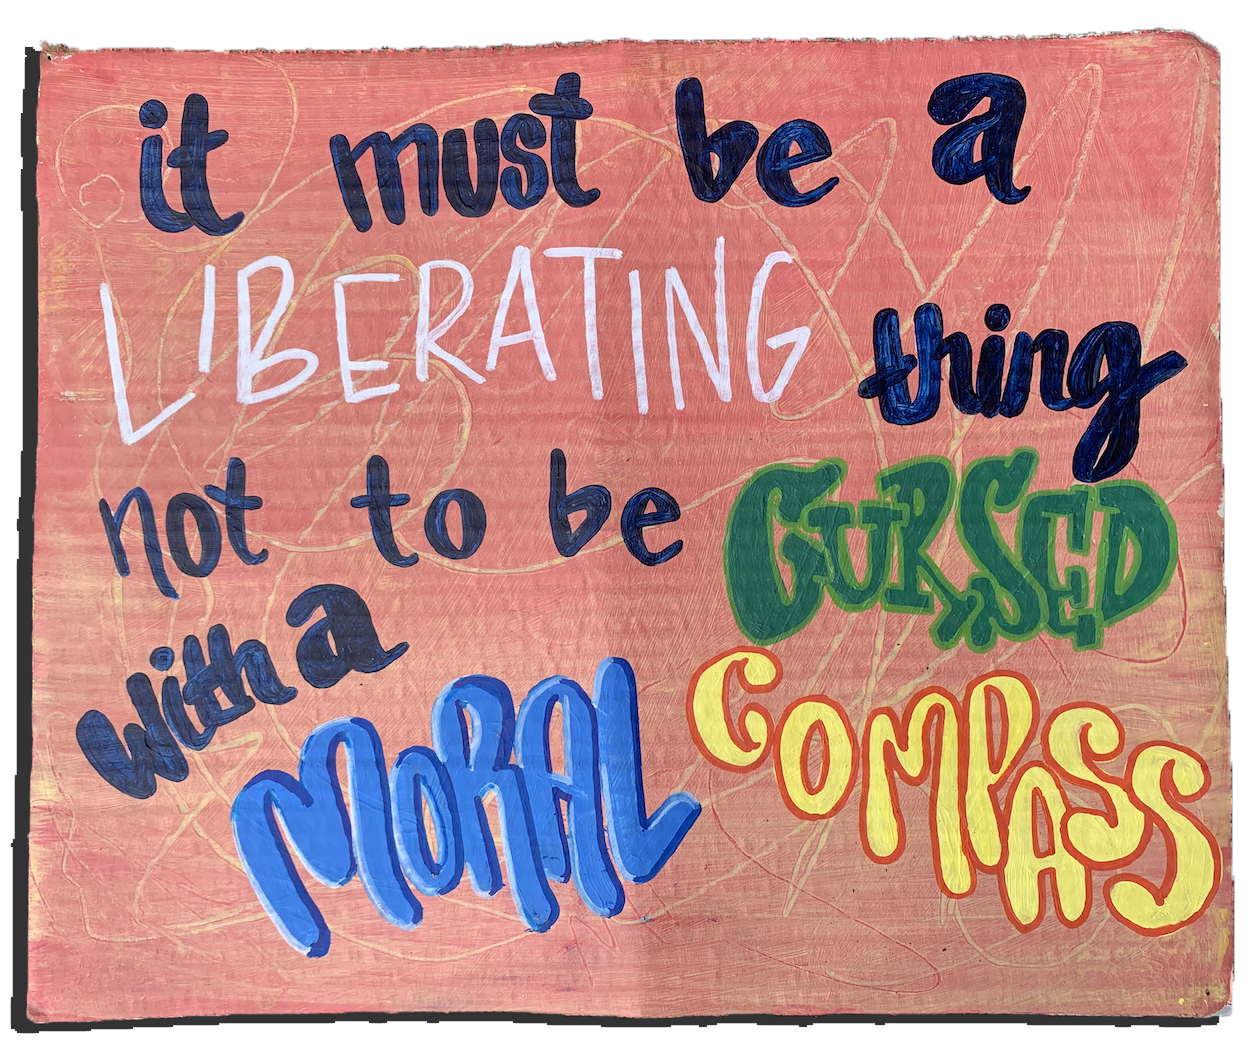 it must be a
LIBERATING thing
not to be CURSED
with a MORAL COMPASS